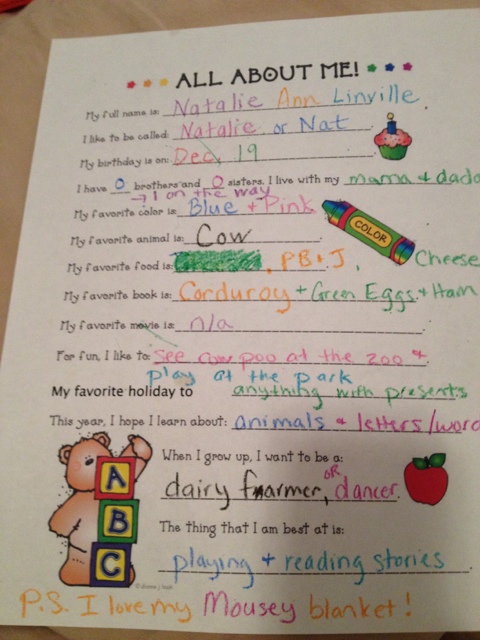 ALL ABOUT ME!
My full name is: Natalie Ann Linville
I like to be called: Natalie or Nat
My birthday is on: Dec, 19
I have 0 brothers and 0 sisters. I live with my mama + dada
→ 1 on the way
My favorite color is: Blue + Pink
COLOR
My favorite animal is: Cow
My favorite food is: , PB+J, Cheese
My favorite book is: Corduroy + Green Eggs + Ham
My favorite movie is: n/a
For fun, I like to: see cow poo at the zoo +
play at the park
My favorite holiday to anything with presents
This year, I hope I learn about: animals + letters/word
When I grow up, I want to be a:
dairy farmer, OR dancer.
The thing that I am best at is:
playing + reading stories
A
B
C
P.S. I love my Mousey blanket!